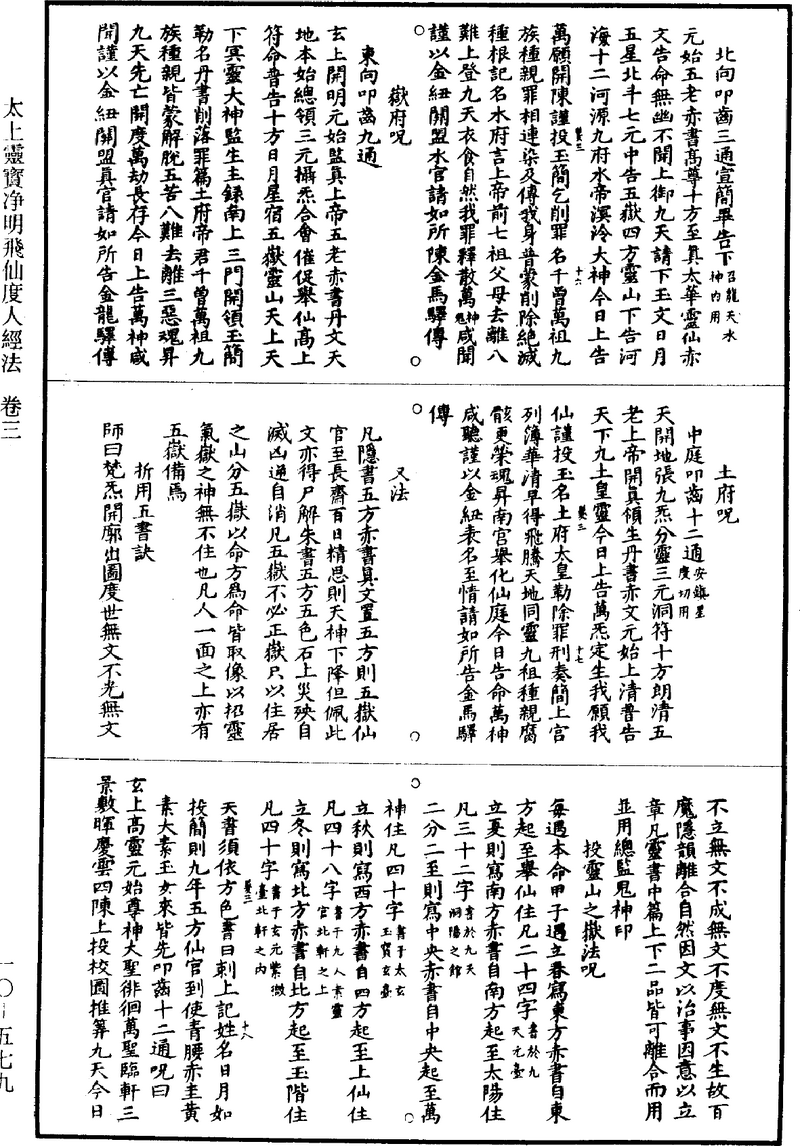 太上靈寶净明飛仙度人經法　卷三
北向叩齒三通宣簡畢告下 召龍天水神內用
元始五老赤書高尊十方至真太華靈仙亦
文告命無幽不開上御九天請下玉文日月
五星北斗七元中告五嶽四方靈山下告河
海十二河源九府水帝溟泠大神今日上告
萬願開陳謹投玉簡乞削罪名千曾萬祖九
族種親罪相連染及傳我身普蒙削除絕滅
種根記名水府言上帝前七祖父母去離八
難上登九天衣食自然我罪釋散萬神鬼咸聞
謹以金紐關盟水官請如所陳金馬驛傳
嶽府呪
東向叩齒九通
玄上開明元始監真上帝五老赤書丹文天
地本始總領三元攝炁合會催促舉仙高上
符命普告十方日月星宿五嶽靈山天上天
下冥靈大神監生主錄南上三門開領玉簡
勒名丹書削落罪篇土府帝君千曾萬祖九
族種親皆蒙解脫五苦八難去離三惡魂昇
九天先亡開度萬劫長存今日上告萬神咸
聞謹以金紐關盟真官請如所告金龍驛傳
土府呪
中庭叩齒十二通 安鎮星度切用
天開地張九炁分靈三元洞符十方朗清五
老上帝開真領生丹書赤文元始上清普告
天下九土皇靈今日上告萬炁定生我願我
仙謹投玉名土府太皇勒除罪刑奏簡上宮
列簿華清早得飛騰天地同靈九祖種親腐
骸更榮魂昇南宮舉化仙庭今日告命萬神
咸聽謹以金紐表名至情請如所告金馬驛
傳
又法
凡隱書五方赤書真文置五方則五嶽仙
官至長齋百日精思則天神下降但佩此
文亦得尸解朱書五方五色石上災殃自
滅凶逆自消凡五嶽不必正嶽只以住居
之山分五嶽以命方為命皆取像以招靈
氣嶽之神無不住也凡人一面之上亦有
五嶽備焉
折用五書訣
師曰梵炁開廓出圖度世無文不光無文
不立無文不成無文不度無文不生故百
魔隱韻離合自然因文以治事因意以立
章凡靈書中篇上下二品皆可離合而用
並用總監鬼神印
投靈山之嶽法呪
每遇本命甲子遇立春寫東方赤書自東
方起至舉仙住凡二十四字 書於九天元臺
立夏則寫南方赤書自南方起至太陽住
凡三十二字 書於九天洞陽之館
二分二至則寫中央赤書自中央起至萬
神住凡四十字 書于太玄玉寶玄臺
立秋則寫西方赤書自四方起至上仙住
凡四十八字 書于九人素靈宮北軒之上
立冬則寫北方赤書自北方起至玉階住
凡四十字 書于玄元紫微臺北軒之內
天書須依方色書曰刺上記姓名日月如
投簡則九年五方仙官到使青腰赤圭黃
素大素玉女來皆先叩齒十二通呪曰
玄上高靈元始尊神大聖徘徊萬聖臨軒三
景敷暉慶雲四陳上投校圖推筭九天今日
一〇—五七九